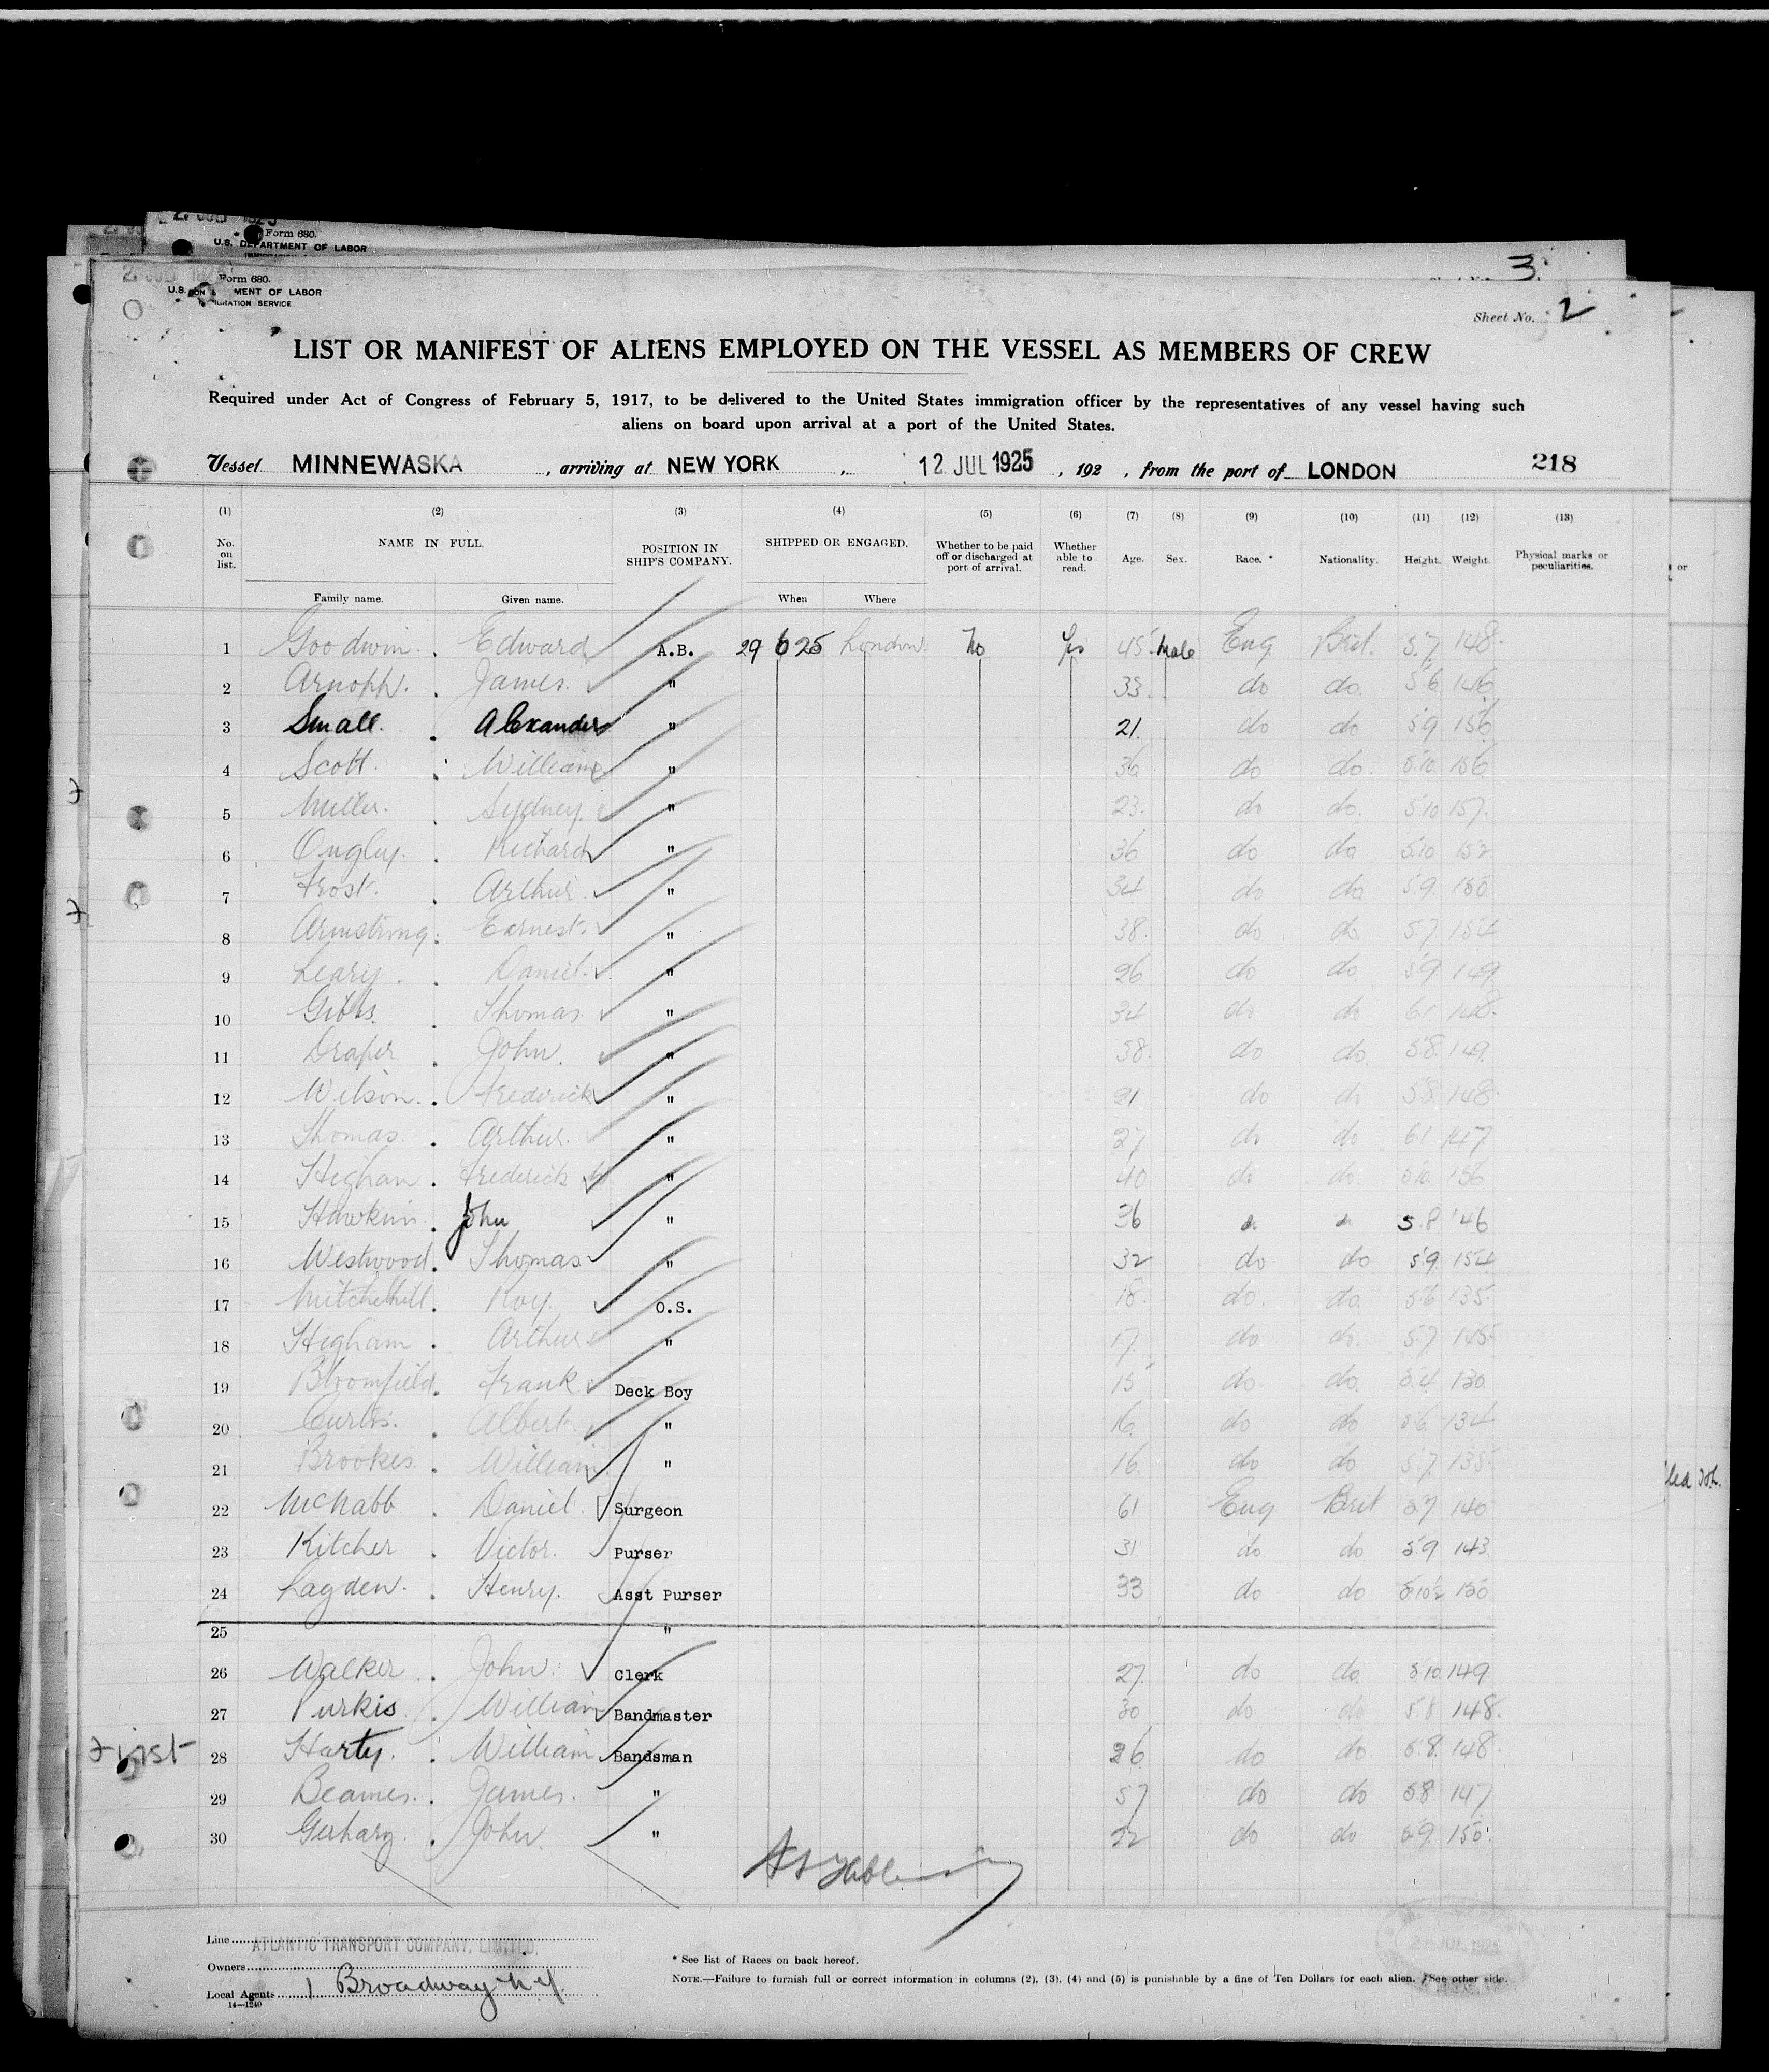 2. JUL 1925
Form 680.
U.S. DEPARTMENT OF LABOR
3
2. JUL 192
Form 680.
U.S. MENT OF LABOR
IGRATION SERVICE
Sheet No. 2
LIST OR MANIFEST OF ALIENS EMPLOYED ON THE VESSEL AS MEMBERS OF CREW
Required under Act of Congress of February 5, 1917, to be delivered to the United States immigration officer by the representatives of any vessel having such
aliens on board upon arrival at a port of the United States.
Vessel MINNEWASKA , arriving at NEW YORK , 12 JUL 1925 , 192 , from the port of LONDON 218
(1) (2) (3) (4) (5) (6) (7) (8) (9) (10) (11) (12) (13)
No. on list. NAME IN FULL. POSITION IN SHIP'S COMPANY. SHIPPED OR ENGAGED. Whether to be paid off or discharged at port of arrival. Whether able to read. Age. Sex. Race. * Nationality. Height. Weight. Physical marks or peculiarities.
Family name. Given name. When Where
1 Goodwin . Edward A.B. 29 6 25 London No Yes 45 Male Eng Brit. 5.7 148
2 Arnopp . James " 33 do do. 5.6 146
3 Small . Alexander " 21 do do 5.9 156
4 Scott . William " 36 do do. 5.10 156
5 Miller . Sydney " 23 do do. 5.10 157
6 Ongley . Richard " 36 do do 5.10 152
7 Frost . Arthur " 34 do do 5.9 150
8 Armstrong . Earnest " 38 do do 5.7 154
9 Leary . Daniel " 26 do do 5.9 149
10 Gibbs . Thomas " 34 do do 6.1 148
11 Draper . John " 38 do do 5.8 149
12 Wilson . Frederick " 21 do do 5.8 148
13 Thomas . Arthur " 27 do do 6.1 147
14 Higham . Frederick " 40 do do 5.10 156
15 Hawkins . John " 36 5.8 146
16 Westwood . Thomas " 32 do do 5.9 154
17 Mitchell . Roy O.S. 18 do. do 5.6 135
18 Higham . Arthur " 17 do do. 5.7 145
19 Bloomfield . Frank Deck Boy 15 do do. 5.4 130
20 Curtis . Albert " 16 do do 5.6 134
21 Brookes . William " 16 do do 5.7 138
22 McNabb . Daniel Surgeon 61 Eng Brit 5.7 140
23 Kitcher . Victor Purser 31 do do 5.9 143
24 Lagden . Henry Asst Purser 33 do do 5.10½ 150
25 "
26 Walker . John Clerk 27 do do 5.10 149
27 Purkis . William Bandmaster 30 do do 5.8 148
First 28 Harty . William Bandsman 26 do do 5.8 148
29 Beames . James " 57 do do 5.8 147
30 . John " 22 do do 5.9 150
Line ATLANTIC TRANSPORT COMPANY, LIMITED.
Owners
Local Agents 1 Broadway N.Y.
14—1240
* See list of Races on back hereof.
NOTE.—Failure to furnish full or correct information in columns (2), (3), (4) and (5) is punishable by a fine of Ten Dollars for each alien. See other side.